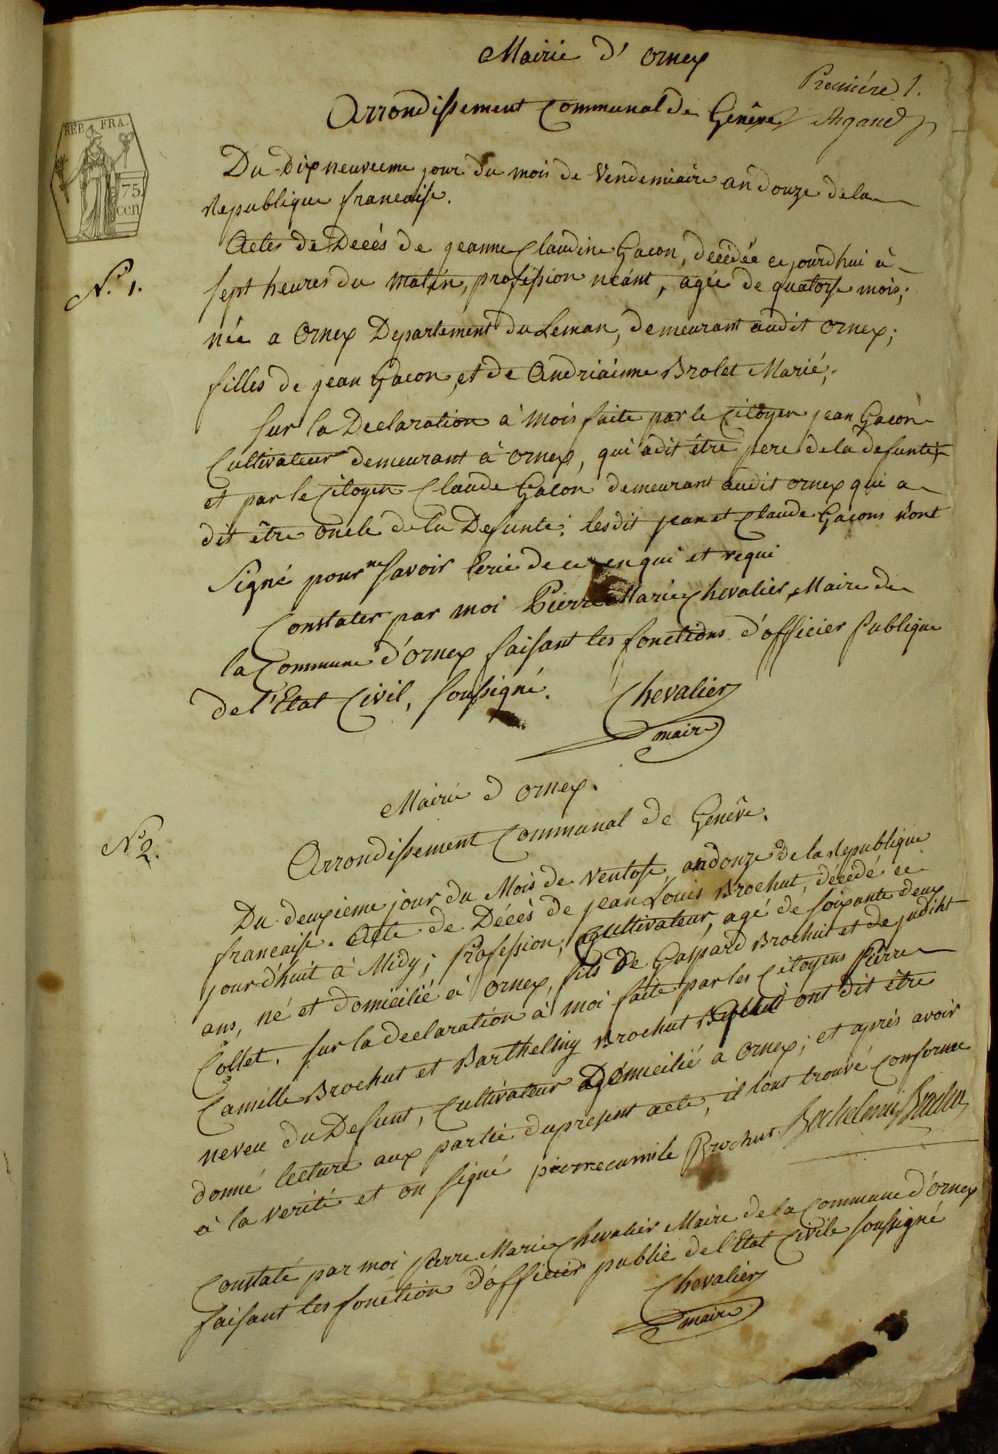 Mairie d'Ornex
Premiére 1.
Arrondissement Communal de Genêve
REP. FRA.
75
cen
Du Dixneuvieme jour du mois de Vendemiaire an douze de la
Republique francaise.
N.° 1.
Actes de Decés de jeanne Claudine Gacon, decédée ce jourdhui à
sept heures du matin, profession néant, agée de quatorse mois;
née a Ornex Departement du Leman, demeurant audit Ornex;
filles de jean Gacon, et de Andriaienne Brolet Marié;
sur la Declaration à mois faite par le Citoyen jean Gacon
Cultivateur demeurant à Ornex, qui a dit être pere de la defunte
et par le Citoyen Claude Gacon demeurant audit ornex qui a
dit être oncle de la Defunte; lesdit jean et Claude Gacons n'ont
Signé pour ne savoir Ecrie de ce enqui et requi
Constater par moi Pierre Marie Chevalier, Maire de
la Commune d'Ornex faisant les fonctions d'officier Publique
de l'Etat Civil, soussigné.
Chevalier
maire
Mairie d ornex.
N.° 2.
Arrondissement Communal de Genêve.
Du deuxieme jour du Mois de Ventose, an douze de la Republique
francaise. Acte de Décés de jean Louis Brochut, décédé ce
jourd'huit à Midy; Profession, Cultivateur, agé de soixante deux
ans, né et domicilié à Ornex, fils de Gaspard Brochut et de judiht
Collet. sur la declaration à moi faite par les Citoyens Pierre
Camille Brochut et Barthelmy Brochut ont dit être
neveu du Defunt, Cultivateur Domicilié a Ornex; et aprés avoir
donné lecture aux partie du present acte, il lont trouvé Conforme
à la verité et on signé pierre camile Brochut
Constaté par moi Pierre Marie Chevalier Maire de la Commune d'Ornex
faisant les fonction d'officier publié de l'Etat Civile soussigné
Chevalier
maire